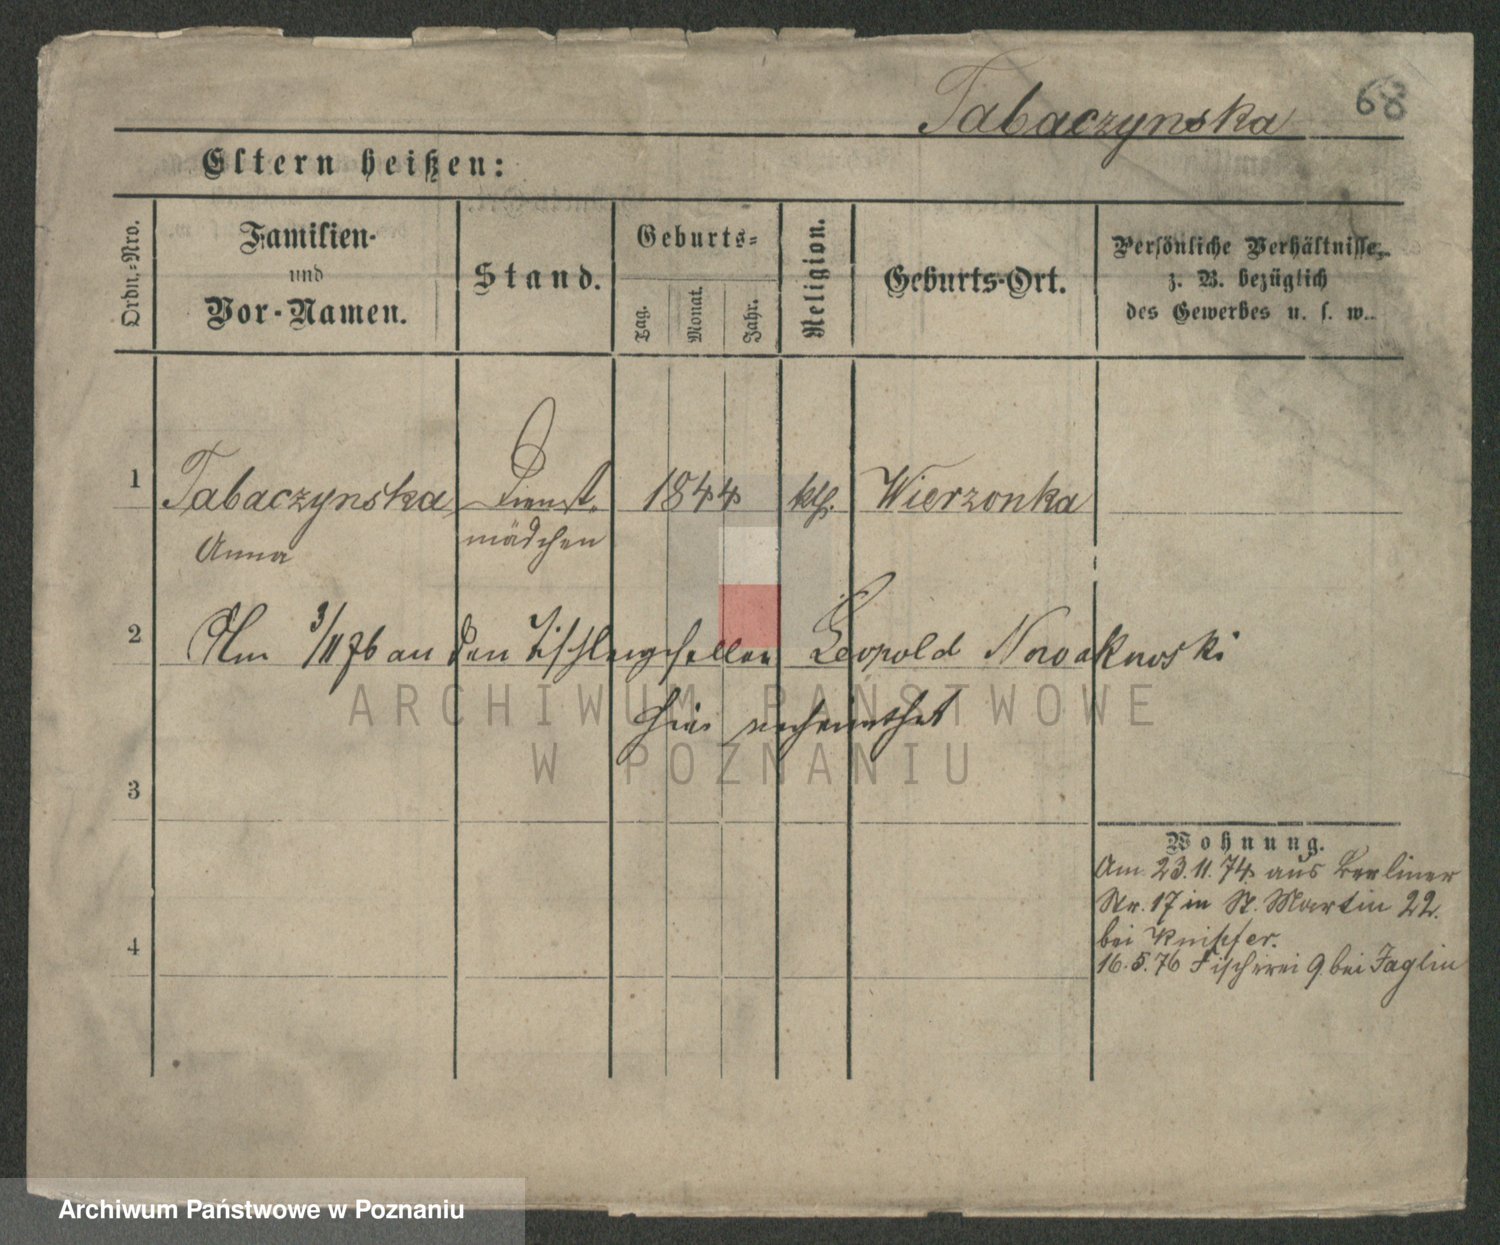 Tabaczynska 68
Eltern heißen:
Ordn.-Nro.
Familien-
und
Vor-Namen.
Stand.
Geburts-
Tag.
Monat.
Jahr.
Religion.
Geburts-Ort.
Persönliche Verhältnisse,
z. B. bezüglich
des Gewerbes u. s. w.
1 Tabaczynska Dienst- 1844 kth. Wierzonka
Anna mädchen
2 Am 3/11 76 an den Tischlergesellen Leopold Nowakowski
hier verheirathet
ARCHIWUM PAŃSTWOWE
W POZNANIU
3
Wohnung.
Am 23.11.74 aus Berliner
Str. 17 in St. Martin 22.
bei
4
16.5.76 Fischerei 9 bei Jaglin
Archiwum Państwowe w Poznaniu